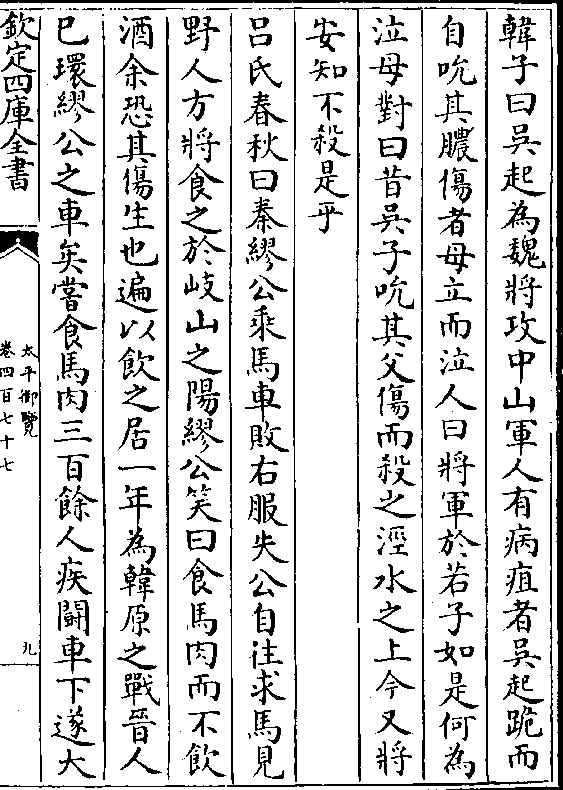 韓子曰吳起為魏將攻中山軍人有病疽者吳起跪而
自吮其膿傷者母立而泣人曰將軍於若子如是何為
泣母對曰昔吳子吮其父傷而殺之涇水之上今又將
安知不殺是乎
呂氏春秋曰秦繆公乘馬車敗右服失公自往求馬見
野人方將食之於岐山之陽繆公笑曰食馬肉而不飲
酒余恐其傷生也遍以飲之居一年為韓原之戰晉人
已環繆公之車矣嘗食馬肉三百餘人疾鬭車下遂大
欽定四庫全書
太平御覽
卷四百七十七
九